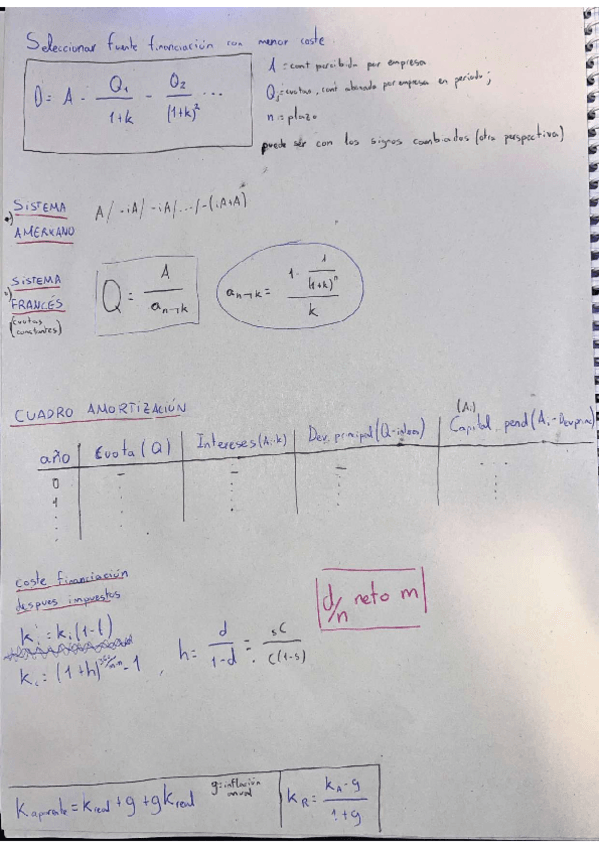 Seleccionar fuente financiación con menor coste
0 = A - Q₁/(1+k) - Q₂/(1+k)² ...
A = cant percibida por empresa
Qⱼ = cuotas, cant abonada por empresa en periodo j
n = plazo
puede ser con los signos cambiados (otra perspectiva)
SISTEMA AMERICANO
A / -iA / -iA / ... / -(iA+A)
SISTEMA FRANCÉS
(cuotas constantes)
Q = A / a n¬k
a n¬k = (1 - 1/(1+k)ⁿ) / k
CUADRO AMORTIZACIÓN
(Aᵢ)
año Cuota (Q) Intereses (Aᵢ·k) Dev. principal (Q-intereses) Capital pend (Aᵢ - Dev princ)
0 - - - ...
1
Coste financiación
despues impuestos
kᵢ' = kᵢ (1-t)
kᵢ = (1+h) - 1 , h = d/(1-d) = sC/(C(1-s))
d/n neto m
k aparente = k real + g + g k real
g = inflación anual
k R = (k A - g)/(1+g)